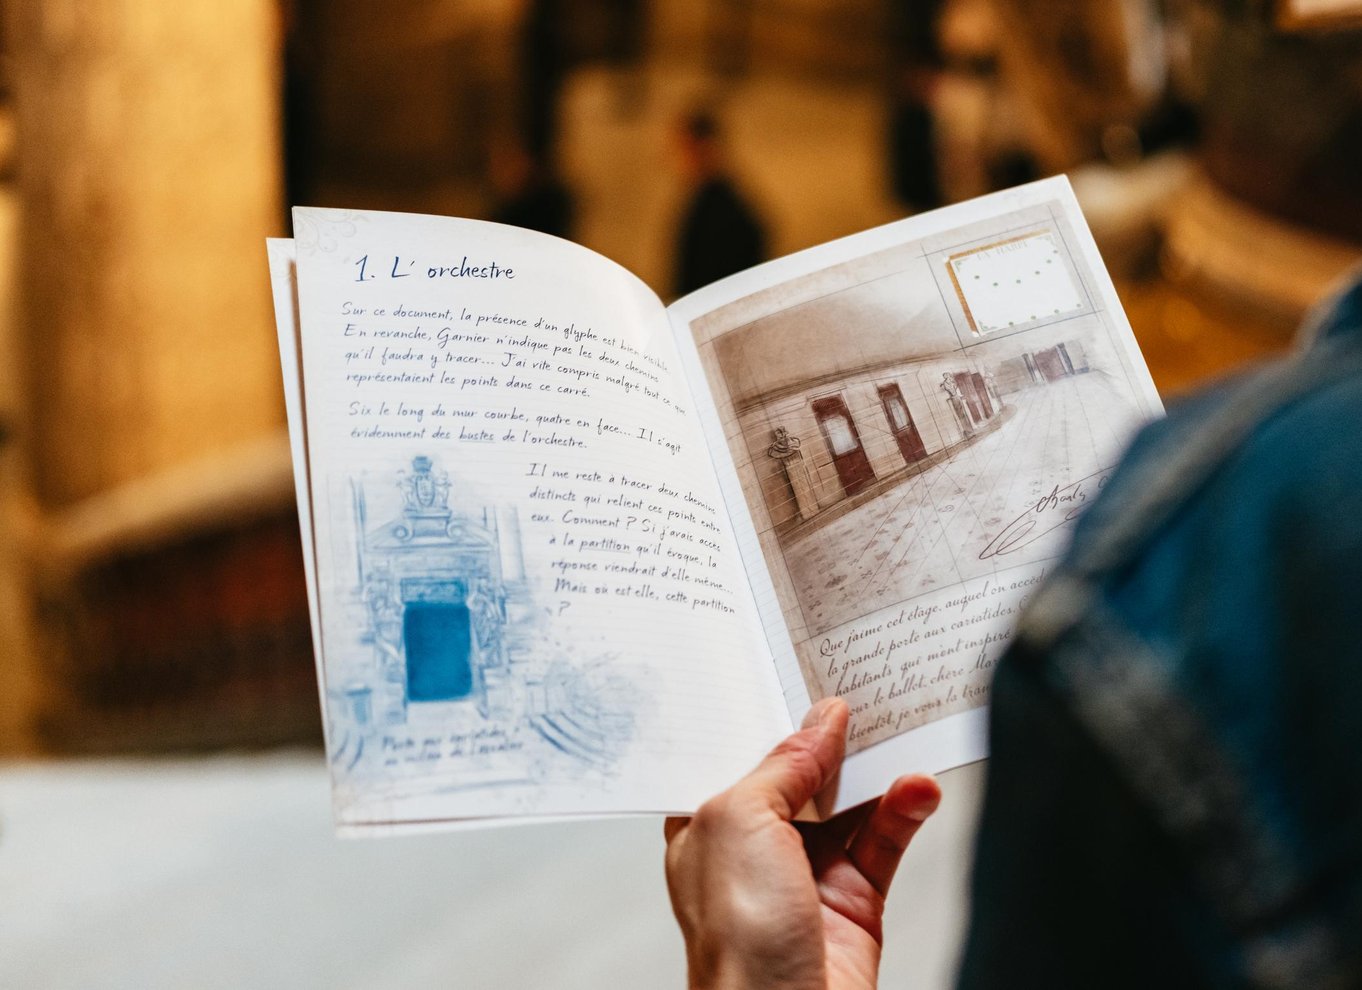 1. L' orchestre
Sur ce document, la présence d'un glyphe est bien visible.
En revanche, Garnier n'indique pas les deux chemins
qu'il faudra y tracer... J'ai vite compris malgré tout ce que
représentaient les points dans ce carré.
Six le long du mur courbe, quatre en face... Il s'agit
évidemment des bustes de l'orchestre.
Il me reste à tracer deux chemins
distincts qui relient ces points entre
eux. Comment ? Si j'avais accès
à la partition qu'il évoque, la
réponse viendrait d'elle même...
Mais où est elle, cette partition
?
Porte aux cariatides,
au milieu de l'escalier
Que j'aime cet étage, auquel on accède
la grande porte aux cariatides.
habitants qui m'ont inspiré
pour le ballet, chère
bientôt, je vous la